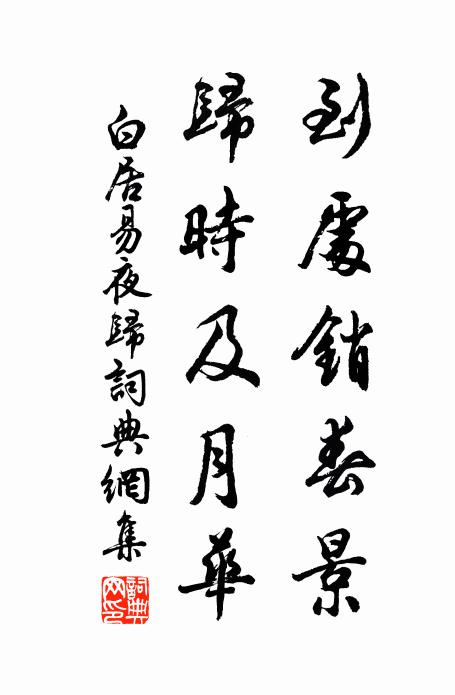 到處銷春景
歸時及月華
白居易夜歸詞典網集
詞典網印